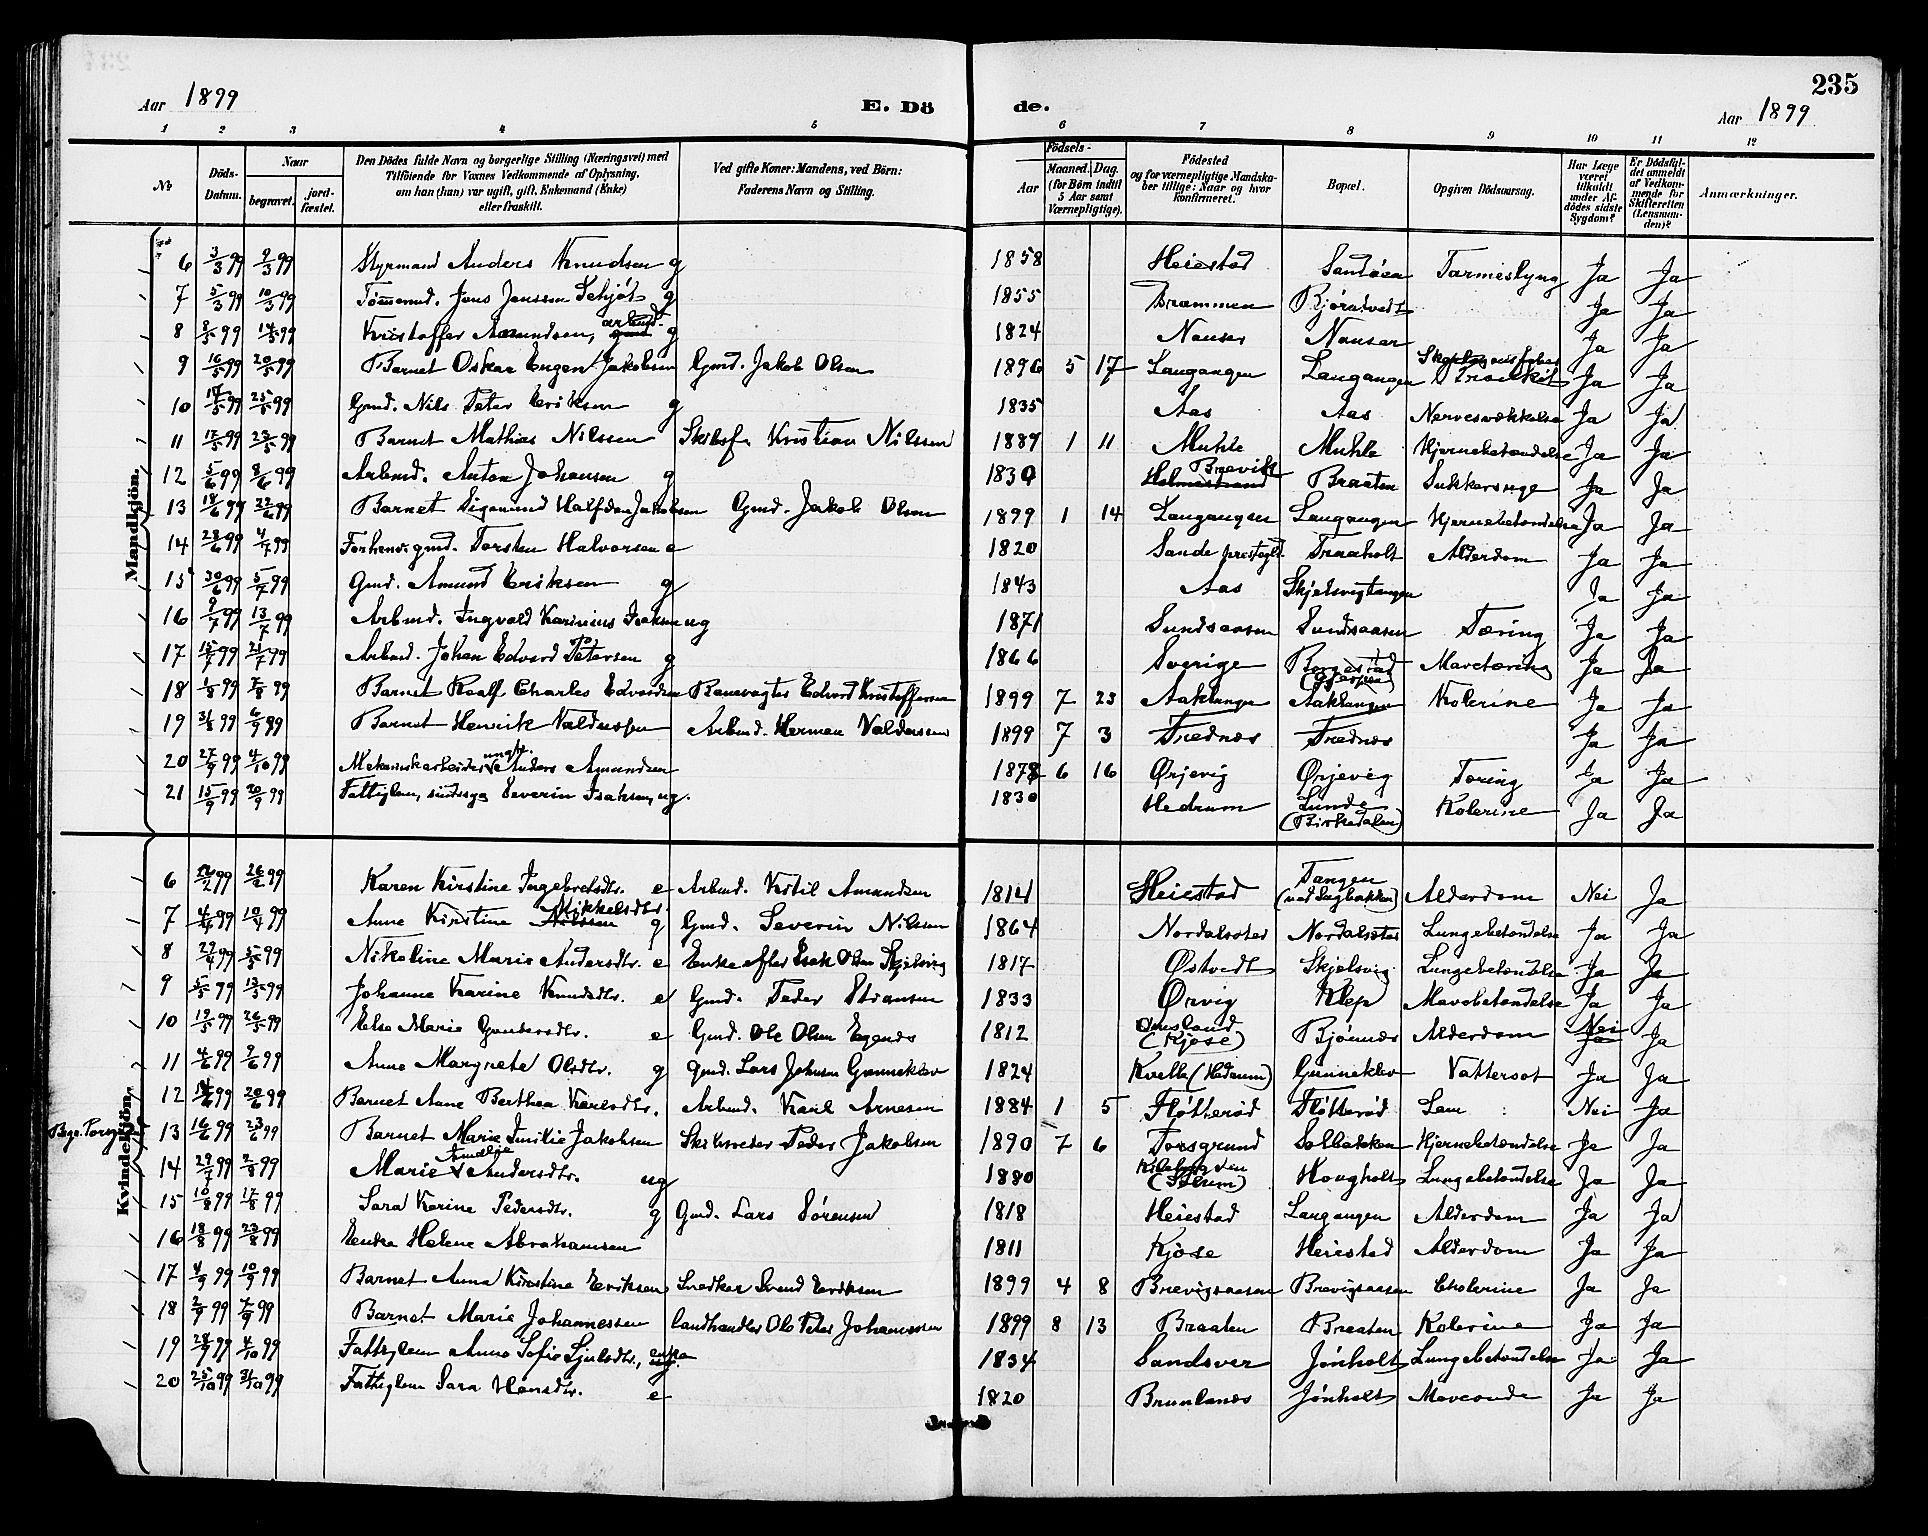 235
Aar 1899
E. Dö
de.
Aar 1899
1 2 3 4 5 6 7 8 9 10 11 12
No
Döds-Datum.
Naar
begravet.
jord-fæstet.
Den Dödes fulde Navn og borgerlige Stilling (Næringsvei) med
Tilföiende for Voxnes Vedkommende af Oplysning,
om han (hun) var ugift, gift, Enkemand (Enke)
eller fraskilt.
Ved gifte Koner: Mandens, ved Börn:
Faderens Navn og Stilling.
Födsels-
Aar
Maaned. Dag.
(for Börn indtil
5 Aar samt
Værnepligtige).
Födested
og for værnepligtige Mandska-
ber tillige: Naar og hvor
konfirmeret.
Bopæl.
Opgiven Dödsaarsag.
Har Læge
været
tilkaldt
under Af-
dödes sidste
Sygdom?
Er Dödsfal-
det anmeldt
af Vedkom-
mende for
Skifteretten
(Lensman-
den)?
Anmærkninger.
Mandkjön.
6 3/3 99 9/3 99 Styrmand Anders Knudsen g 1858 Heiestad Sandøen Tarmeslyng Ja Ja
7 5/3 99 10/3 99 Tømmermd. Jens Jenssen Schjøt g 1855 Brammen Bjørntvedt Ja Ja
8 8/5 99 14/5 99 Kristoffer Amundsen, arbmd. g 1824 Nauser Nauser Ja Ja
9 16/5 99 20/5 99 Barnet Oskar Eugen Jakobsen Gmd. Jakob Olsen 1896 5 17 Langangen Langangen Ja Ja
10 17/5 99 25/5 99 Gmd. Nils Peter Eriksen g 1835 Aas Aas Nervesvækkelse Ja Ja
11 17/5 99 23/5 99 Barnet Mathias Nilssen Skibsf. Kristian Nilssen 1889 1 11 Muhle Muhle Hjernebetændelse Ja Ja
12 5/6 99 8/6 99 Arbmd. Anton Johansen g 1830 Holmestrand Brevik Braaten Sukkersyge Ja Ja
13 18/6 99 22/6 99 Barnet Sigmund Halfdan Jakobsen Gmd. Jakob Olsen 1899 1 14 Langangen Langangen Hjernebetændelse Ja Ja
14 28/6 99 4/7 99 Forhenv. gmd. Torsten Halvorsen e 1820 Sande prestegld Traaholt Alderdom Ja Ja
15 30/6 99 5/7 99 Gmd. Amund Eriksen g 1843 Aas Skjelsvigtangen Ja Ja
16 9/7 99 13/7 99 Arbmd. Ingvald Karinius Isaksen ug 1871 Sundsaasen Sundsaasen Tæring Ja Ja
17 15/7 99 21/7 99 Arbmd. Johan Edvard Petersen g 1866 Sverige Borgestad (Gjerpen) Mavetæring Ja Ja
18 1/8 99 5/8 99 Barnet Roalf Charles Edvardsen Banevogter Edvard Kristoffersen 1899 7 23 Aaklungen Aaklungen Kolerine Ja Ja
19 31/8 99 6/9 99 Barnet Henrik Valdersen Arbmd. Herman Valdersen 1899 7 3 Frednes Frednes Ja Ja
20 27/9 99 4/10 99 Mekaniskarbeider ungk. Anders Amundsen 1878 6 16 Ørjevig Ørjevig Tæring Ja Ja
21 15/9 99 20/9 99 Fattiglem, sindssyg Severin Isaksen, ug. 1830 Hedrum Lunde (Birkedalen) Kolerine Ja Ja
Kvindekjön.
6 22/2 99 26/2 99 Karen Kirstine Ingebretsdtr. e Arbmd. Ketil Amundsen 1814 Heiestad Tangen (ved Sagbakken) Alderdom Nei Ja
7 4/4 99 10/4 99 Anne Kirstine Nilssen Mikkelsdtr. g Gmd. Severin Nilssen 1864 Nordalseter Nordalseter Lungebetændelse Ja Ja
8 29/4 99 5/5 99 Nikoline Marie Andersdtr. e Enke efter Isak Olsen Skjelsvig 1817 Østvedt Skjelsvig Lungebetændelse Ja Ja
9 5/5 99 13/5 99 Johanne Karine Knudsdtr. e Gmd. Peder Stransen 1833 Ørvig Klep Mavebetændelse Ja Ja
10 19/5 99 26/5 99 Else Marie Gundersdtr. e Gmd. Ole Olsen Eganes 1812 (Kjose) Bjønnes Alderdom Nei Ja
11 4/6 99 9/6 99 Anne Margrete Olsdtr. g Gmd. Lars Johnsen Gunneklev 1824 Kvelle (Hedrum) Gunneklev Vattersot Ja Ja
12 14/6 99 20/6 99 Barnet Anne Berthea Karlsdtr. Arbmd. Karl Arnesen 1884 1 5 Fløtterød Fløtterød Lam Nei Ja
13 16/6 99 23/6 99 Barnet Marie Emilie Jakobsen Skibsreder Peder Jakobsen 1890 7 6 Porsgrund Solbakken Hjernebetændelse Ja Ja
14 29/7 99 2/8 99 Marie Amalie Andersdtr. ug 1880 (Solum) Hougholt Lungebetændelse Ja Ja
15 10/8 99 17/8 99 Sara Karine Pedersdtr. g Gmd. Lars Sørensen 1818 Heiestad Langangen Alderdom Ja Ja
16 18/8 99 23/8 99 Enke Helene Abrahamsen 1811 Kjose Heiestad Alderdom Ja Ja
17 4/9 99 10/9 99 Barnet Anna Kirstine Eriksen Snedker Svend Eriksen 1899 4 8 Brevigsaasen Brevigsaasen Cholerine Ja Ja
18 2/9 99 7/9 99 Barnet Marie Johannessen Landhandler Ole Peter Johannessen 1899 8 13 Braaten Braaten Kolerine Ja Ja
19 28/9 99 4/10 99 Fattiglem Anne Sofie Sjulsdtr., enke 1834 Sandsver Jønholt Lungebetændelse Ja Ja
20 25/10 99 31/10 99 Fattiglem Sara Hansdtr. e 1820 Brunlanes Jønholt Maveonde Ja Ja